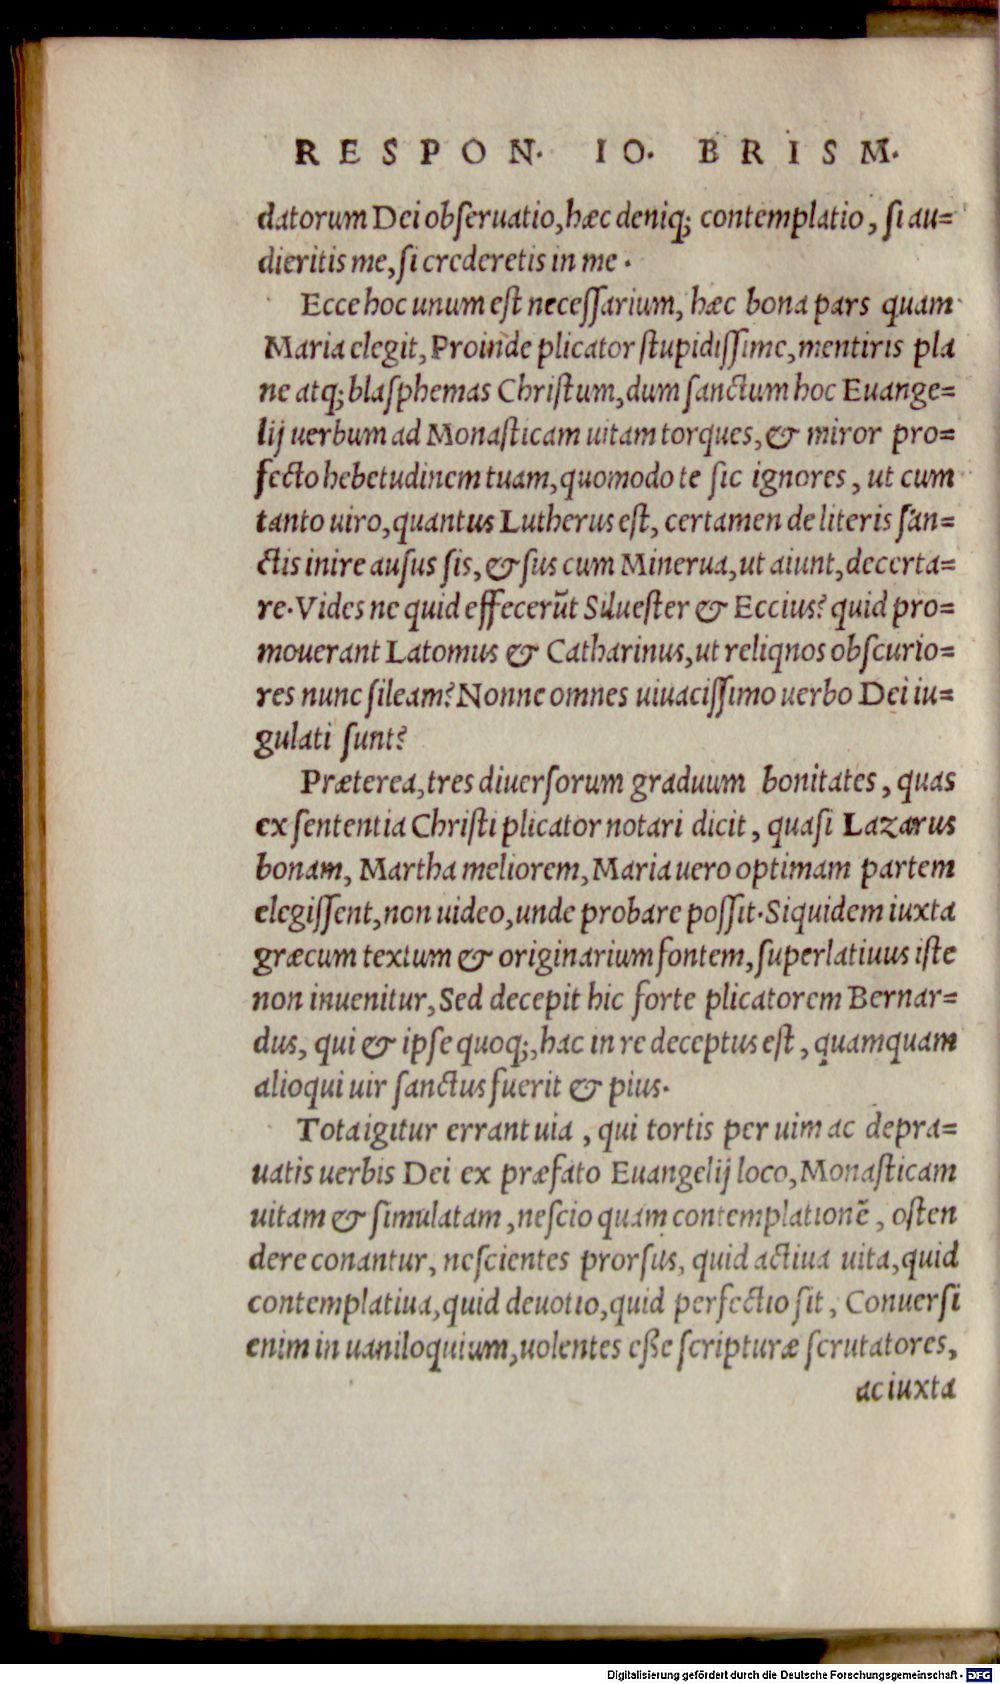 RESPON. IO. BRISM.
datorum Dei obſeruatio, hæc deniq; contemplatio, ſi au=
dieritis me, ſi crederetis in me.
Ecce hoc unum eſt neceſſarium, hæc bona pars quam
Maria elegit, Proinde plicator ſtupidiſſime, mentiris pla
ne atq; blaſphemas Chriſtum, dum ſanctum hoc Euange=
lij uerbum ad Monaſticam uitam torques, & miror pro=
fecto hebetudinem tuam, quomodo te ſic ignores, ut cum
tanto uiro, quantus Lutherus eſt, certamen de literis ſan=
ctis inire auſus ſis, & ſus cum Minerua, ut aiunt, decerta=
re. Vides ne quid effecerūt Silueſter & Eccius? quid pro=
mouerant Latomus & Catharinus, ut reliqnos obſcurio=
res nunc ſileam? Nonne omnes uiuaciſſimo uerbo Dei iu=
gulati ſunt?
Præterea, tres diuerſorum graduum bonitates, quas
ex ſententia Chriſti plicator notari dicit, quaſi Lazarus
bonam, Martha meliorem, Maria uero optimam partem
elegiſſent, non uideo, unde probare poſſit. Siquidem iuxta
græcum textum & originarium fontem, ſuperlatiuus iſte
non inuenitur, Sed decepit hic forte plicatorem Bernar=
dus, qui & ipſe quoq;, hac in re deceptus eſt, quamquam
alioqui uir ſanctus fuerit & pius.
Tota igitur errant uia, qui tortis per uim ac depra=
uatis uerbis Dei ex præfato Euangelij loco, Monaſticam
uitam & ſimulatam, neſcio quam contemplationē, oſten
dere conantur, neſcientes prorſus, quid actiua uita, quid
contemplatiua, quid deuotio, quid perfectio ſit, Conuerſi
enim in uaniloquium, uolentes eſſe ſcripturæ ſcrutatores,
ac iuxta
Digitalisierung gefördert durch die Deutsche Forschungsgemeinschaft - DFG